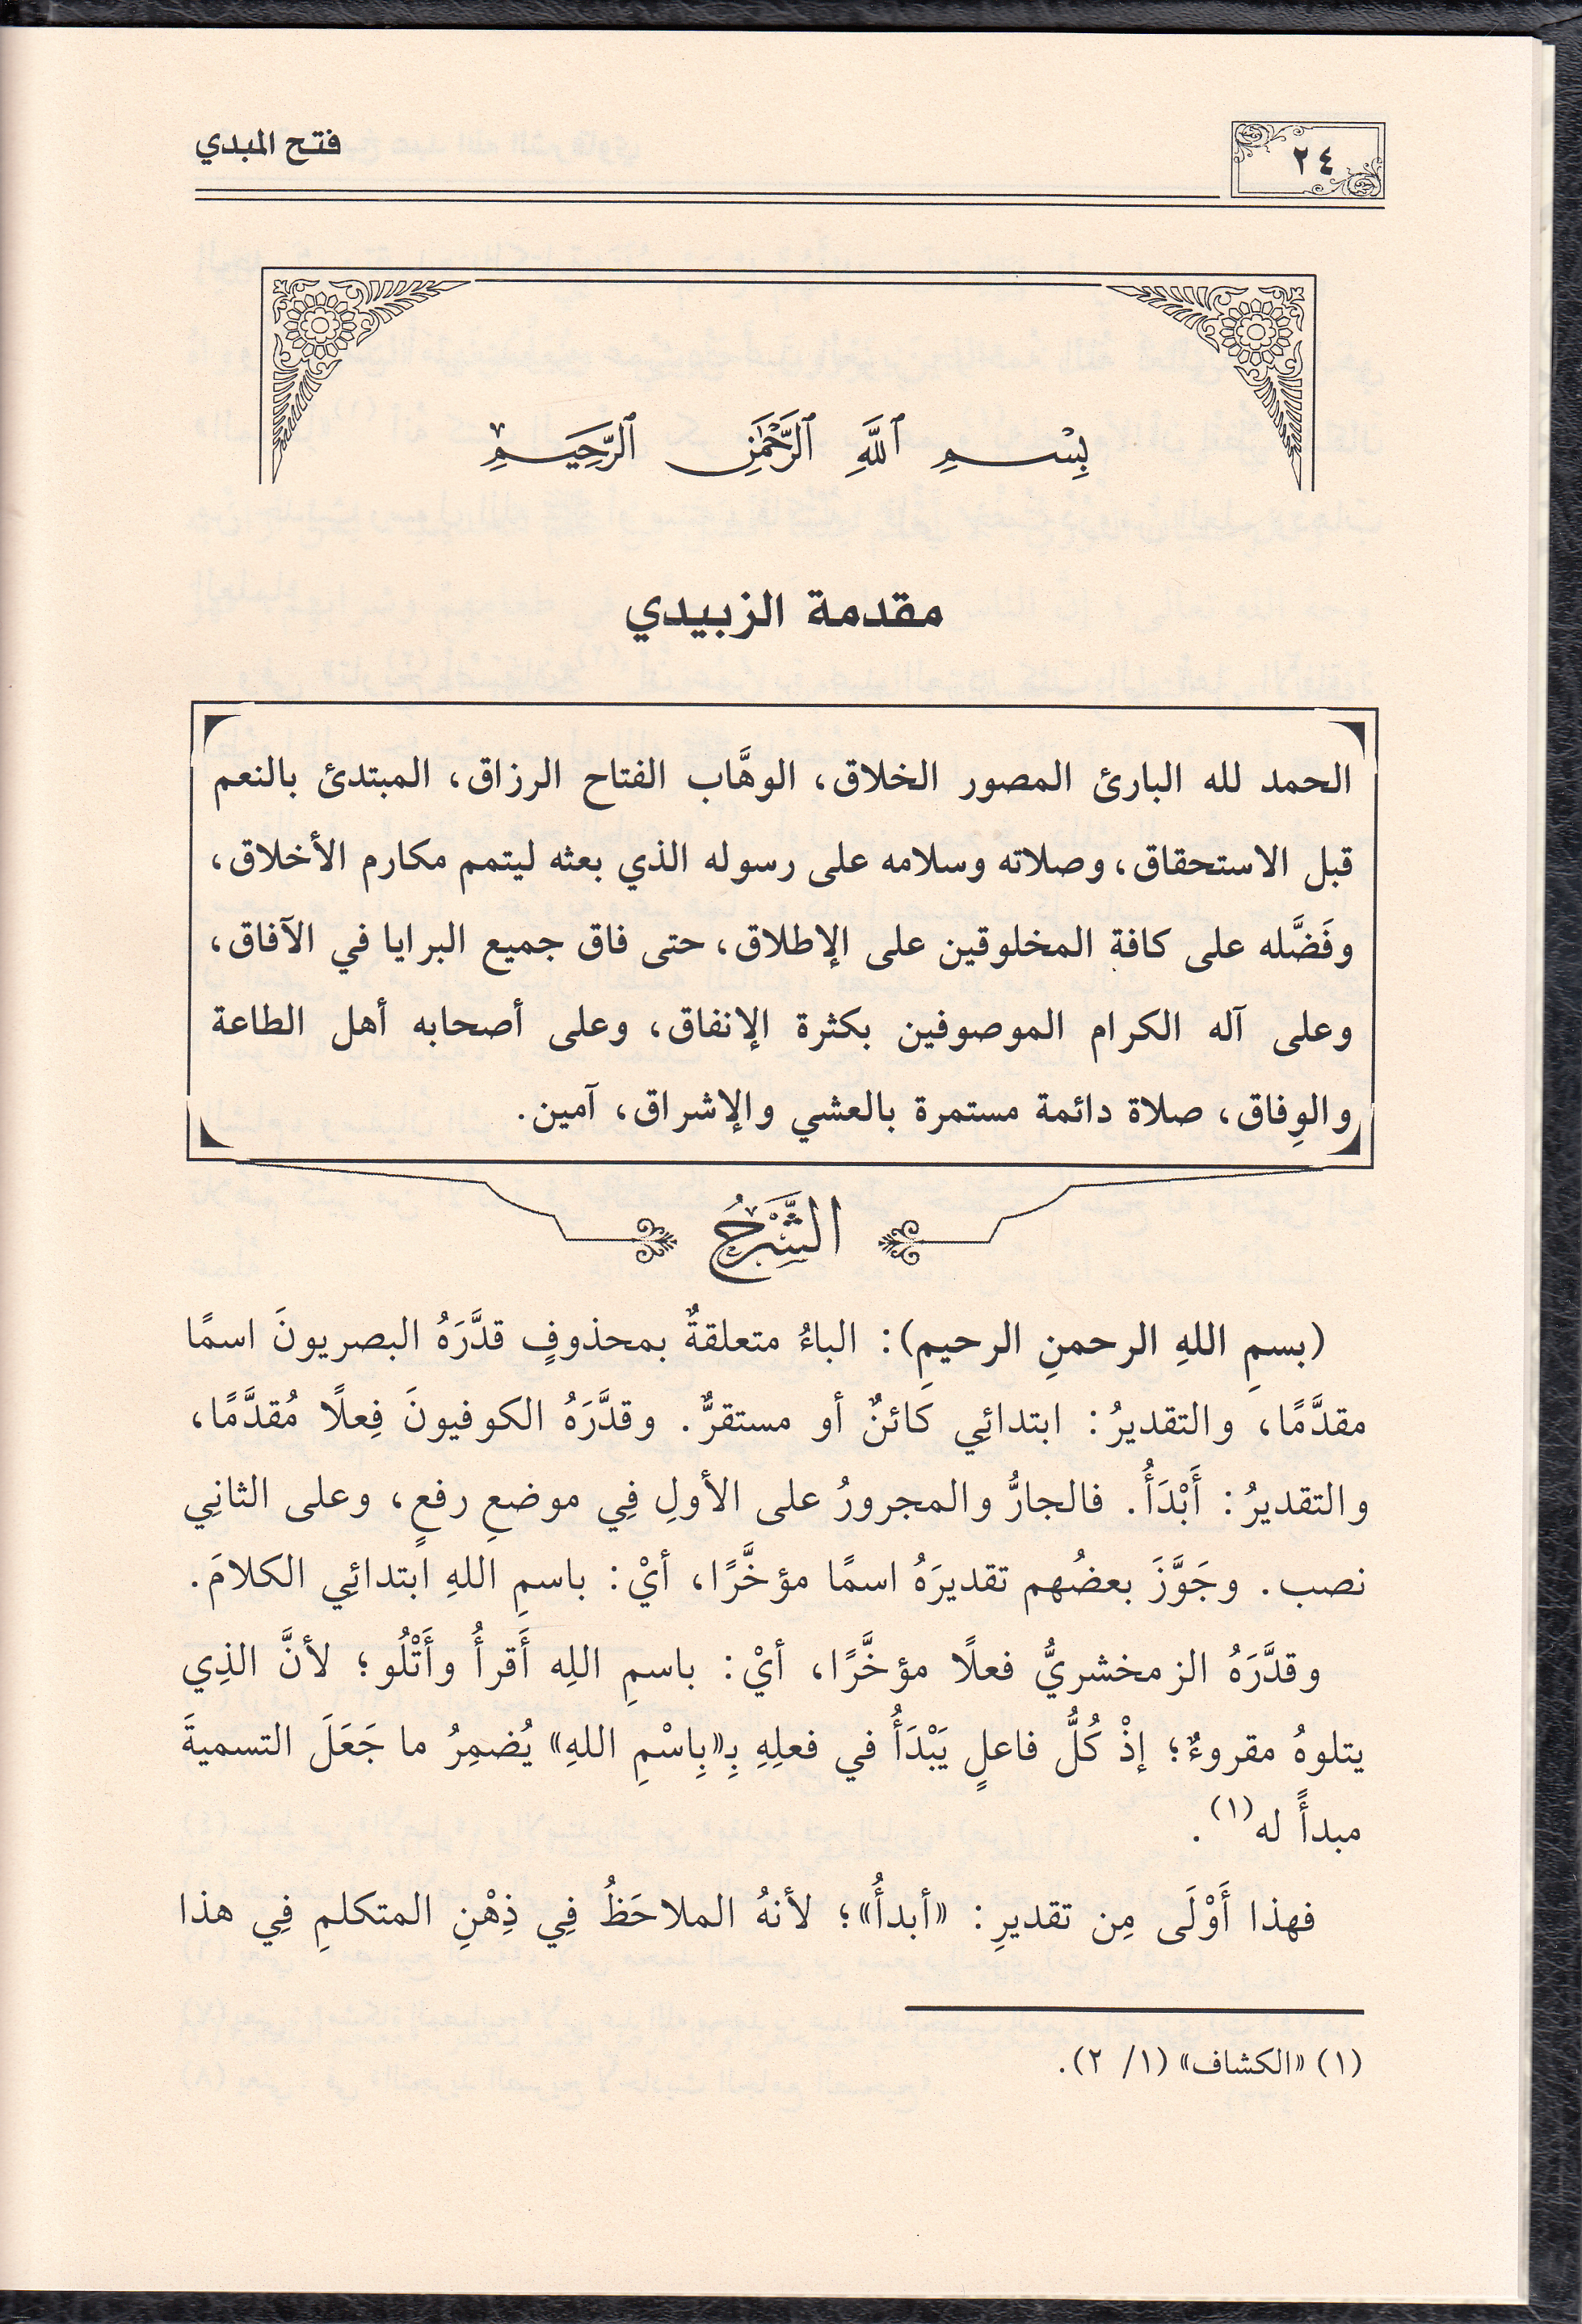 ٢٤
فتح المبدي
بِسْمِ ٱللَّهِ ٱلرَّحْمَٰنِ ٱلرَّحِيمِ
مقدمة الزبيدي
الحمد لله البارئ المصور الخلاق، الوهَّاب الفتاح الرزاق، المبتدئ بالنعم
قبل الاستحقاق، وصلاته وسلامه على رسوله الذي بعثه ليتمم مكارم الأخلاق،
وفَضَّله على كافة المخلوقين على الإطلاق، حتى فاق جميع البرايا في الآفاق،
وعلى آله الكرام الموصوفين بكثرة الإنفاق، وعلى أصحابه أهل الطاعة
والوِفاق، صلاة دائمة مستمرة بالعشي والإشراق، آمين.
الشَّرْحُ
(بسمِ اللهِ الرحمنِ الرحيمِ): الباءُ متعلقةٌ بمحذوفٍ قدَّرَهُ البصريونَ اسمًا
مقدَّمًا، والتقديرُ: ابتدائِي كَائنٌ أو مستقرٌّ. وقدَّرَهُ الكوفيونَ فِعلًا مُقدَّمًا،
والتقديرُ: أَبْدَأُ. فالجارُّ والمجرورُ على الأولِ فِي موضعِ رفعٍ، وعلى الثانِي
نصب. وجَوَّزَ بعضُهم تقديرَهُ اسمًا مؤخَّرًا، أيْ: باسمِ اللهِ ابتدائِي الكلامَ.
وقدَّرَهُ الزمخشريُّ فعلًا مؤخَّرًا، أيْ: باسمِ اللهِ أَقرأُ وأَتْلُو؛ لأنَّ الذِي
يتلوهُ مقروءٌ؛ إذْ كُلُّ فاعلٍ يَبْدَأُ في فعلِهِ بِـ«بِاسْمِ اللهِ» يُضمِرُ ما جَعَلَ التسميةَ
مبدأً له(١).
فهذا أَوْلَى مِن تقديرِ: «أبدأُ»؛ لأنهُ الملاحَظُ فِي ذِهْنِ المتكلمِ فِي هذا
(١) «الكشاف» (١/ ٢).